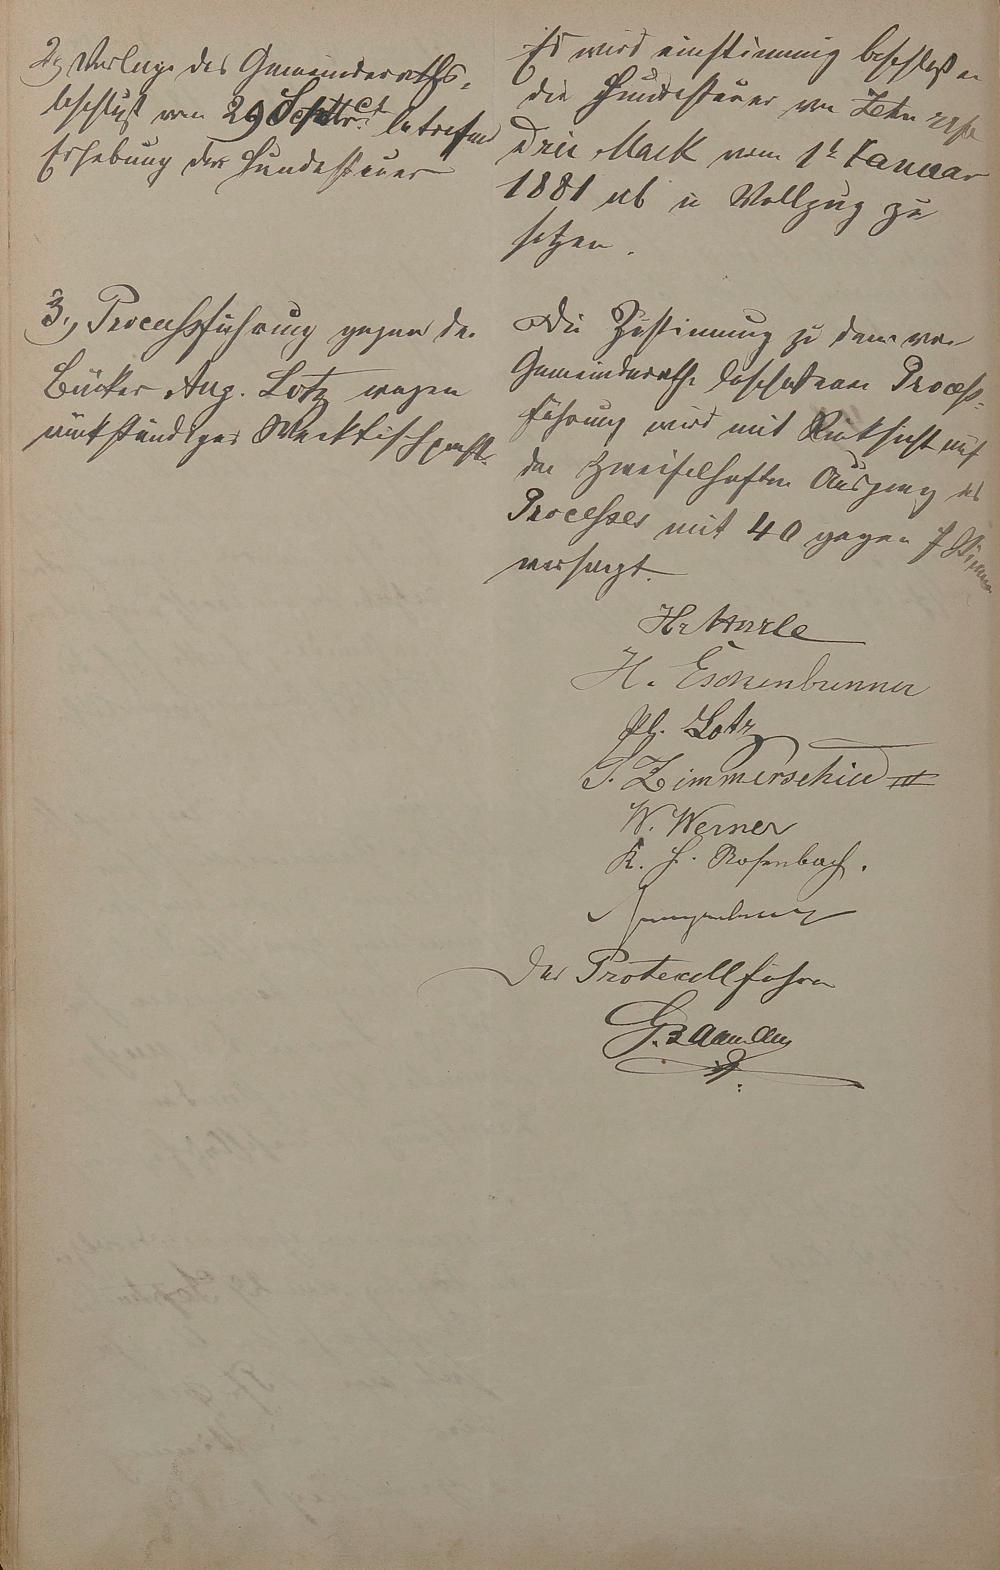 2, Vorlage des Gemeinderaths-
beschluß vom 29 Septbr. ct betrefend
Erhebung der Hundesteuer
Es wird einstimmig beschloßen
die Hundesteuer von Zehn
Drei Mark vom 1t Januar
1881 ab in Vollzug zu
setzen.
3., Processführung gegen den
Bäcker Aug. Lotz wegen
rückständiger Marktischpacht.
Die Zustimmung zu dem vom
Gemeinderathe beschlossenen Process-
führung wird mit Rücksicht auf
den zweifelhaften Ausgang des
Processes mit 40 gegen 7 Stimmen
versagt.
H. Merle
H. Eschenbrenner
Ph. Lotz
S. Zimmerschied III
W. Werner
K. H. Rosenbach.
Der Protocollführer
G. Baumann